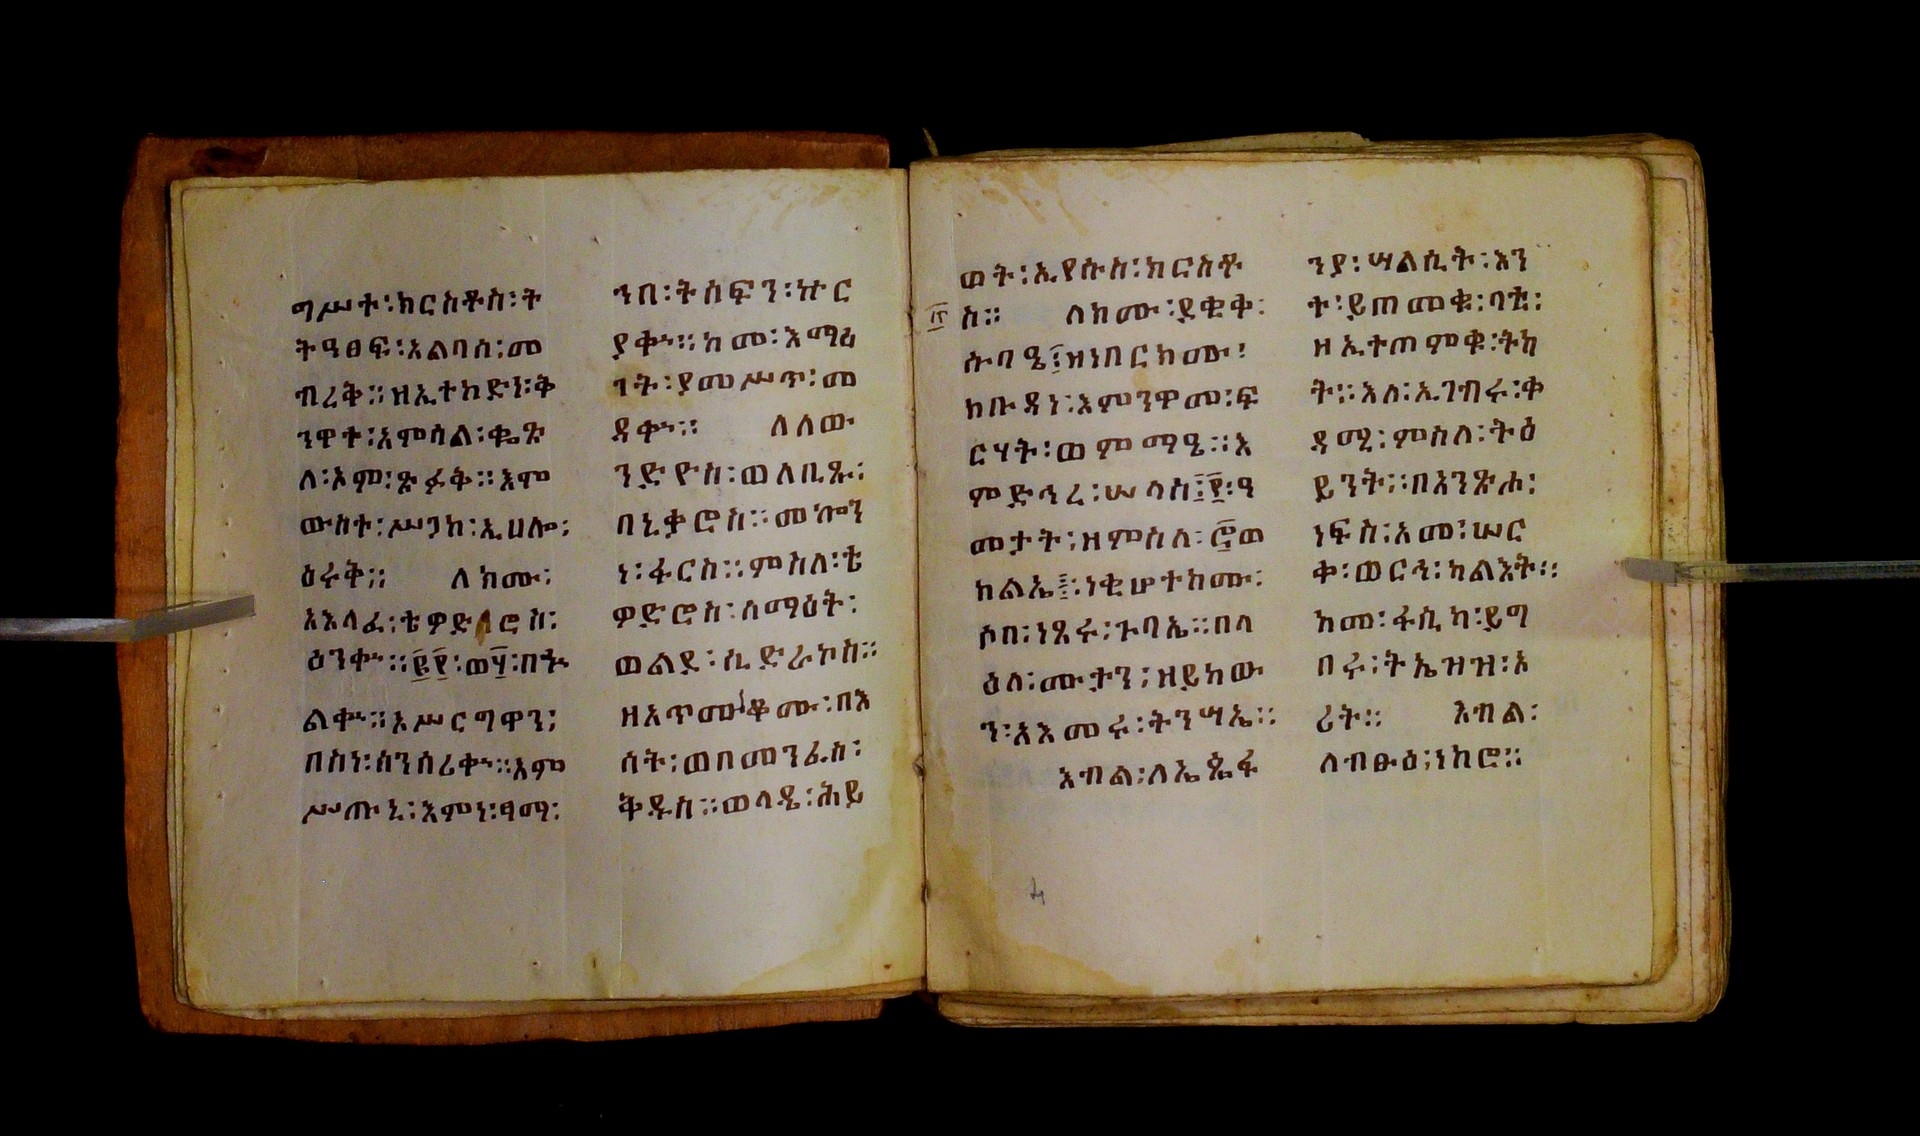 ግሥተ፡ክርስቶስ፡ት
ትዓፀፍ፡አልባስ፡መ
ብረቅ።ዘኢተከድነ፡ቅ
ንዋተ፡አምሳል፡ቈጽ
ለ፡ኦም፡ጽፉቅ።እም
ውስተ፡ሥጋከ፡ኢሀሎ፡
ዕሩቅ።ለክሙ፡
አእላፈ፡ቴዎድሮስ፡
ዕንቍ።፪፻፡ወ፶፡በቍ
ልቍ።አሥርግዋን፡
በስነ፡ሰንሰሪቍ።እም
ሥጡኒ፡እምነ፡ፃማ፡
ንበ፡ትስፍን፡ኵር
ያቍ።ከመ፡እማሬ
ገት፡ያመሥጥ፡መ
ዳቍ።ለለው
ንድዮስ፡ወለቢጹ፡
በኒቃሮስ።መኰን
ነ፡ፋርስ።ምስለ፡ቴ
ዎድሮስ፡ሰማዕት፡
ወልደ፡ሲድራኮስ።
ዘአጥሙቆሙ፡በእ
ሳት፡ወበመንፈስ፡
ቅዱስ።ወላዴ፡ሕይ
ወት፡ኢየሱስ፡ክርስቶ
ስ።ለክሙ፡ደቂቅ፡
ሱባዔ፡ዝነበርክሙ፡
ከቡዳነ፡እምንዋመ፡ፍ
ርሃት፡ወምማዔ።እ
ምድኅረ፡ሠላስ፡፻፡ዓ
መታት፡ዘምስለ፡፸ወ
ክልኤ፡ነቂሆተክሙ፡
ሶበ፡ነጸሩ፡ጉባኤ።በላ
ዕለ፡ሙታን፡ዘይከው
ን፡አእመሩ፡ትንሣኤ።
እብል፡ለኤጲፋ
ንያ፡ሣልሲት፡እን
ተ፡ይጠመቁ፡ባቲ፡
ዘኢተጠምቁ፡ትካ
ት።እለ፡ኢገብሩ፡ቀ
ዳሚ፡ምስለ፡ትዕ
ይንት።በአንጽሖ፡
ነፍስ፡አመ፡ሠር
ቀ፡ወርኅ፡ካልእት።
ከመ፡ፋሲካ፡ይግ
በሩ፡ትኤዝዝ፡ኦ
ሪት።እብል፡
ለብፁዕ፡ነከሮ።